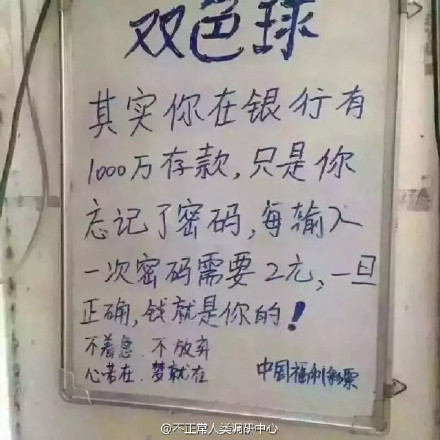 双色球
其实你在银行有
1000万存款,只是你
忘记了密码,每输入
一次密码需要2元,一旦
正确,钱就是你的!
不着急.不放弃
心若在.梦就在
中国福利彩票
@不正常人类调研中心